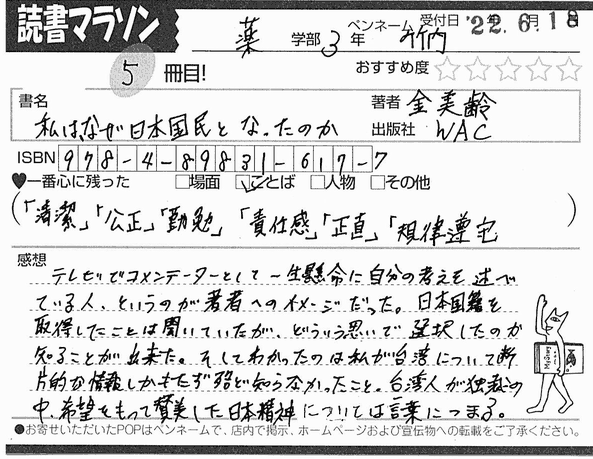 読書マラソン
薬 学部 3 年 ペンネーム 竹内 受付日 '22. 6. 18
5 冊目! おすすめ度 ☆☆☆☆☆
書名 著者 金美齢
私は、なぜ日本国民となったのか 出版社 WAC
ISBN 978-4-89831-617-7
♥一番心に残った □場面 ☑ことば □人物 □その他
(「清潔」「公正」「勤勉」「責任感」「正直」「規律遵守)
感想
テレビでコメンテーターとして一生懸命に自分の考えを述べ
ている人、というのが著者へのイメージだった。日本国籍を
取得したことは聞いていたが、どういう思いで選択したのか
知ることが出来た。そしてわかったのは私が台湾について断
片的な情報しかもたず殆ど知らなかったこと。台湾人が独裁の
中、希望をもって賛美した日本精神については言葉につまる。
●お寄せいただいたPOPはペンネームで、店内で掲示、ホームページおよび宣伝物への転載をご了承ください。